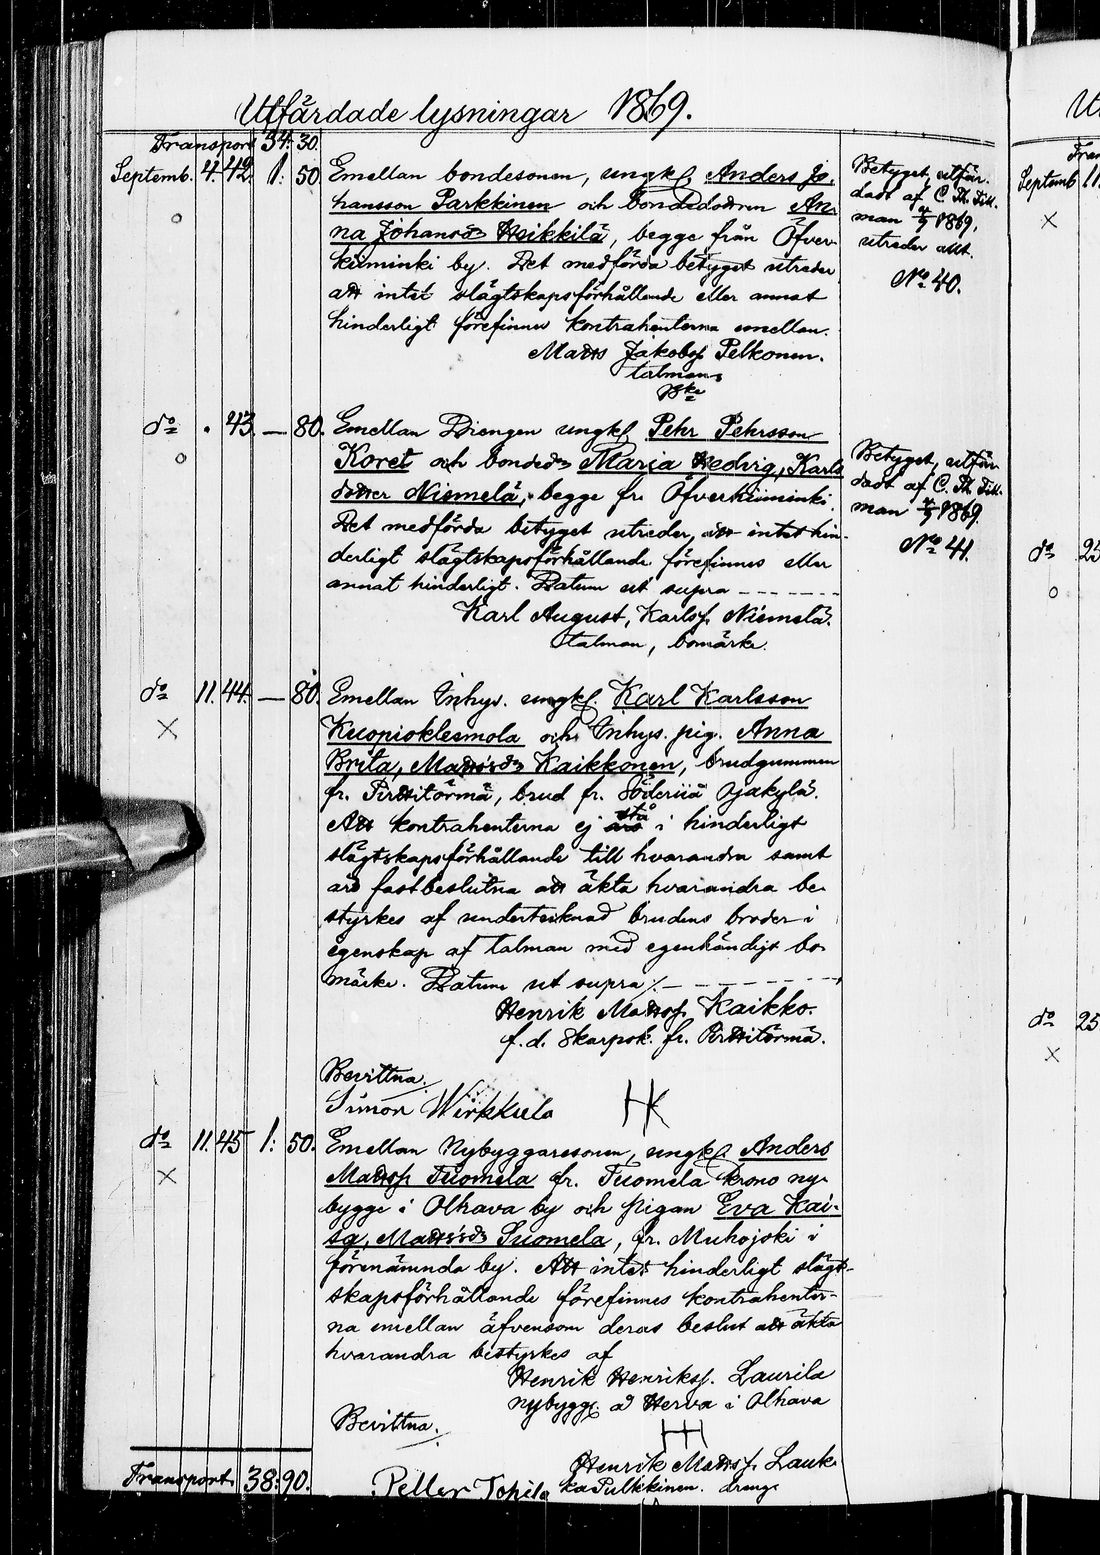 Utfärdade lysningar 1869.
Transport 34: 30.
Septemb. 4. 42. 1: 50. Emellan bondesonen, ungk. Anders Jo-
hansson Parkkinen och bondedottren An-
na Johansdr Heikkilä, begge från Öfver-
kiiminki by. Det medförda betyget utreder
att intet slägtskapsförhållande eller annat
hinderligt förefinnes kontrahenterna emellan.
Matts Jakobsf Pelkonen.
talman
Bke
Betyget, utfär-
dadt af C. Th. Till-
man 4/9 1869,
utreder allt.
No 40.
do " 43. — 80. Emellan Drengen ungk. Pehr Pehrsson
Koret och bondedr Maria Hedvig, Karls
dotter Niemelä, begge fr. Öfverkiiminki.
Det medförda betyget utreder, att intet hin-
derligt slägtskapsförhållande förefinnes eller
annat hinderligt. Datum ut supra
Karl August, Karlsf. Niemelä.
talman, bomärke.
Betyget, utfär-
dadt af C. Th. Till-
man 4/9 1869.
No 41.
do 11. 44. — 80. Emellan Inhys. ungk. Karl Karlsson
X Kuopioklesmola och Inhys. pig. Anna
Brita, Mattsdr Kaikkonen, brudgummen
fr. Pirttitörmä, brud fr. Söderiiå Ojakylä.
Att kontrahenterna ej stå i hinderligt
slägtskapsförhållande till hvarandra samt
äro fastbeslutna att äkta hvarandra be-
styrkes af undertecknad brudens broder i
egenskap af talman med egenhändigt bo-
märke. Datum ut supra
Henrik Mattsf. Kaikko.
f. d. Skarpsk. fr. Pirttitörmä.
Bevittna.
Simon Wirkkula HK
do 11. 45 1: 50. Emellan Nybyggaresonen, ungk. Anders
X Mattsf Tuomela fr. Tuomela krono ny-
bygge i Olhava by och pigan Eva Kai-
sa, Mattsdr Suomela, fr. Muhojoki i
förenämnda by. Att intet hinderligt slägt-
skapsförhållande förefinnes kontrahenter-
na emellan äfvensom deras beslut att äkta
hvarandra bestyrkes af
Henrik Henriksf. Laurila
nybygg. å Herva i Olhava
Bevittna. HH
Henrik Mattsf. Lauk-
Transport. 38: 90. Petter Topila ka Pulkkinen. dreng.